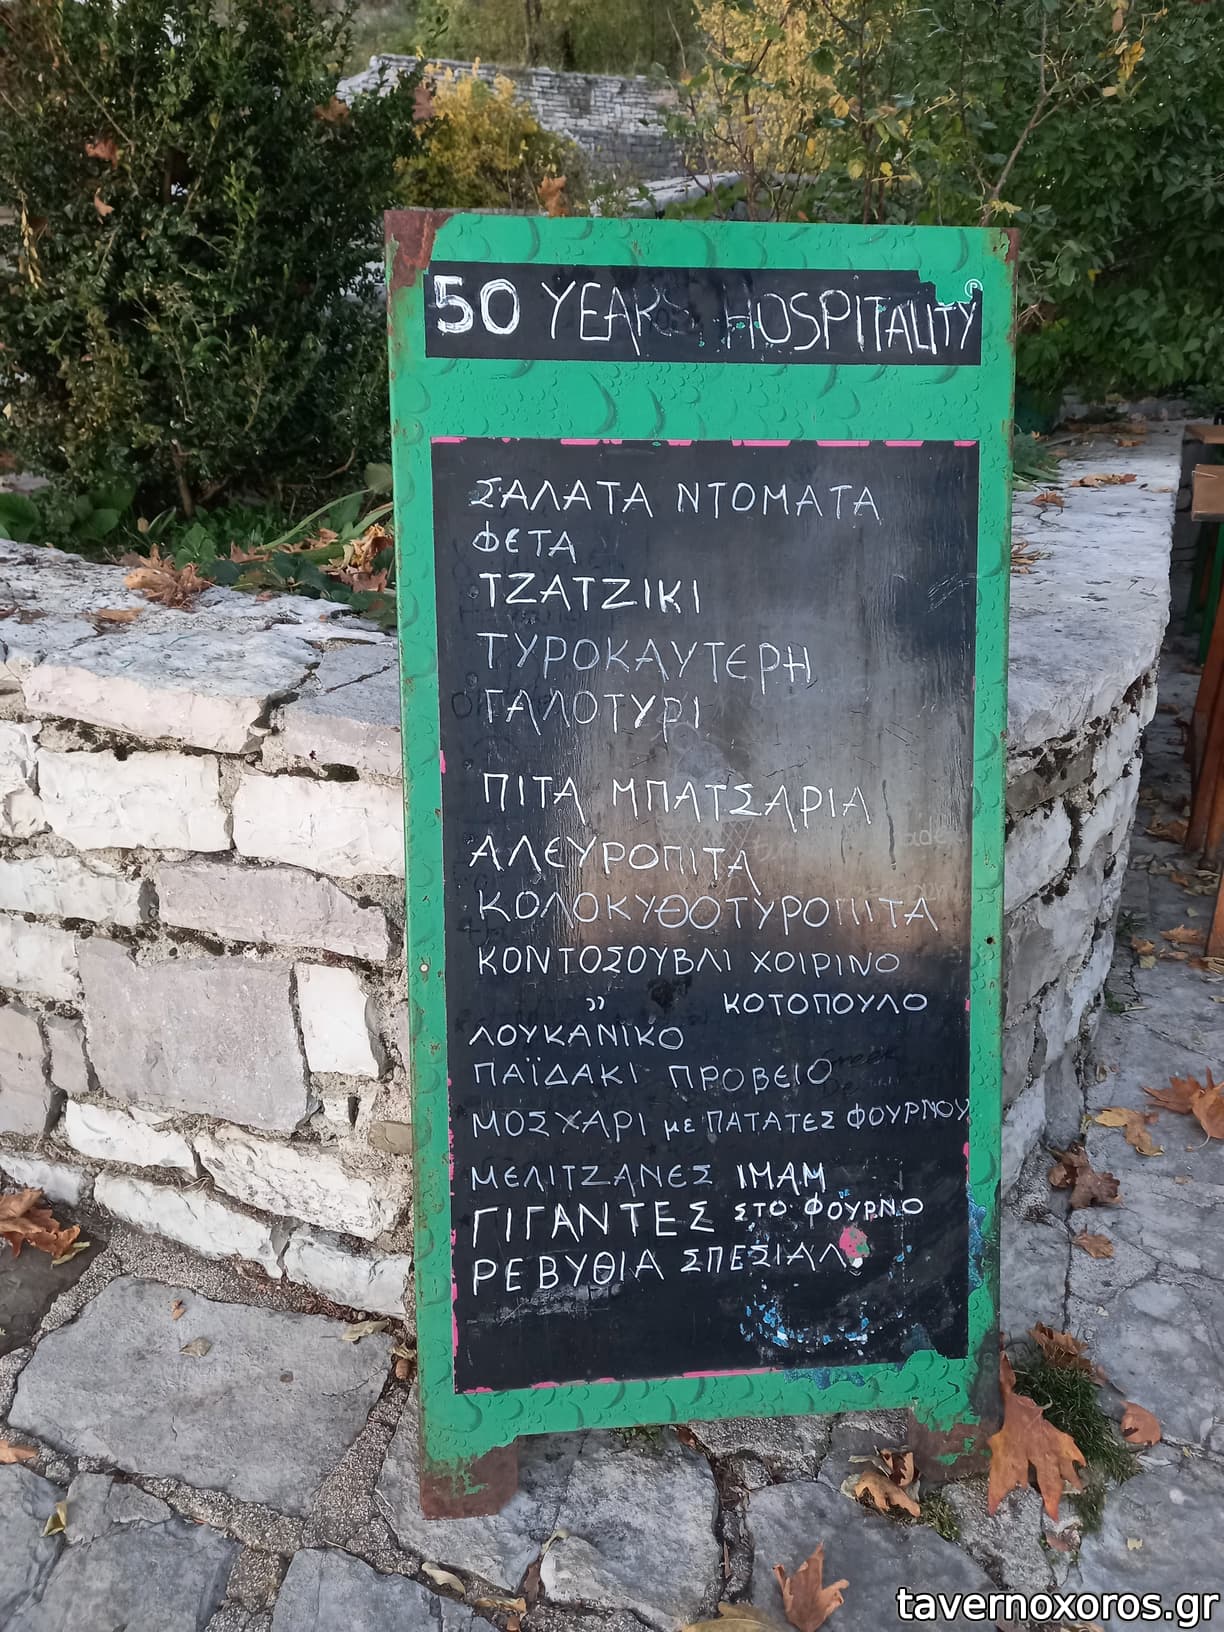 50 YEARS HOSPITALITY
ΣΑΛΑΤΑ ΝΤΟΜΑΤΑ
ΦΕΤΑ
ΤΖΑΤΖΙΚΙ
ΤΥΡΟΚΑΥΤΕΡΗ
ΓΑΛΟΤΥΡΙ
ΠΙΤΑ ΜΠΑΤΣΑΡΙΑ
ΑΛΕΥΡΟΠΙΤΑ
ΚΟΛΟΚΥΘΟΤΥΡΟΠΙΤΑ
ΚΟΝΤΟΣΟΥΒΛΙ ΧΟΙΡΙΝΟ
" ΚΟΤΟΠΟΥΛΟ
ΛΟΥΚΑΝΙΚΟ
ΠΑΪΔΑΚΙ ΠΡΟΒΕΙΟ
ΜΟΣΧΑΡΙ με ΠΑΤΑΤΕΣ ΦΟΥΡΝΟΥ
ΜΕΛΙΤΖΑΝΕΣ ΙΜΑΜ
ΓΙΓΑΝΤΕΣ ΣΤΟ ΦΟΥΡΝΟ
ΡΕΒΥΘΙΑ ΣΠΕΣΙΑΛ
tavernoxoros.gr